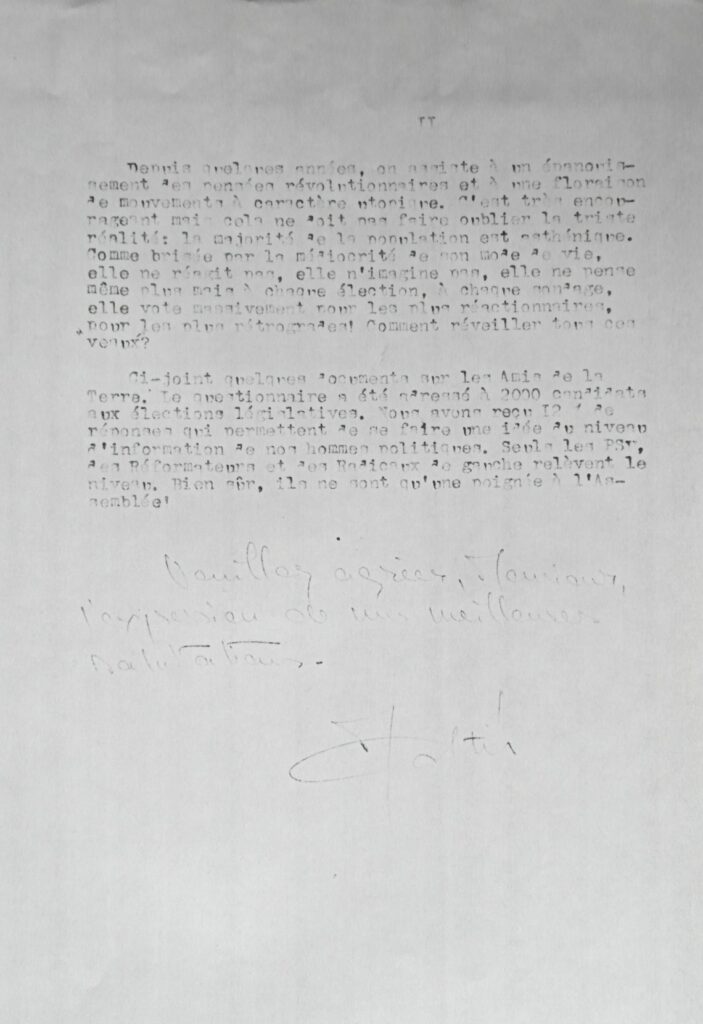 Depuis quelques années, on assiste à un épanouis-
sement des pensées révolutionnaires et à une floraison
de mouvements à caractère utopique. C'est très encou-
rageant mais cela ne doit pas faire oublier la triste
réalité: la majorité de la population est asthénique.
Comme brisée par la médiocrité de son mode de vie,
elle ne réagit pas, elle n'imagine pas, elle ne pense
même plus mais à chaque élection, à chaque sondage,
elle vote massivement pour les plus réactionnaires,
pour les plus rétrogrades! Comment réveiller tous ces
veaux?
Ci-joint quelques documents sur les Amis de la
Terre. Le questionnaire a été adressé à 2000 candidats
aux élections législatives. Nous avons reçu I2 % de
réponses qui permettent de se faire une idée du niveau
d'information de nos hommes politiques. Seuls les PSU,
des Réformateurs et des Radicaux de gauche relèvent le
niveau. Bien sûr, ils ne sont qu'une poignée à l'As-
semblée!
Veuillez agréer, Monsieur,
l'expression de mes meilleures
salutations.